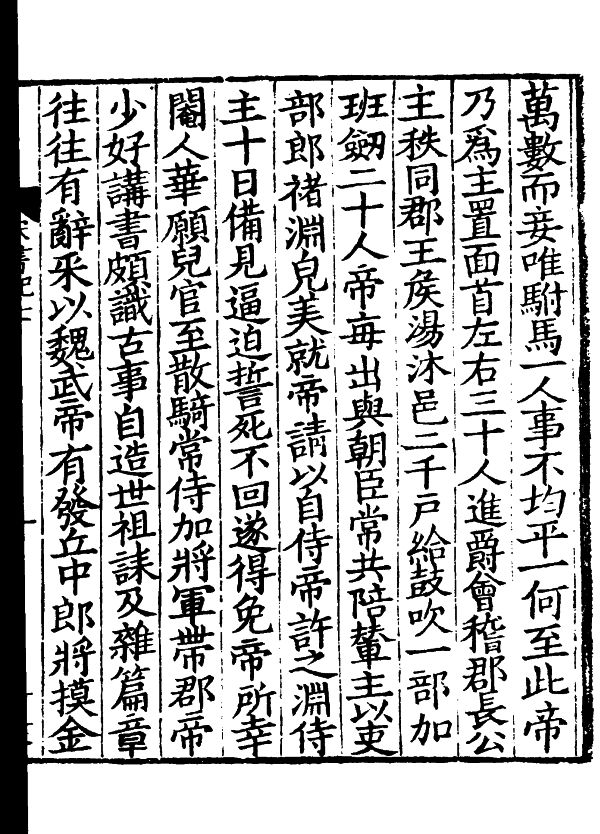 萬數而妾唯駙馬一人事不均平一何至此帝
乃爲主置面首左右三十人進爵會稽郡長公
主秩同郡王矦湯沐邑二千戸給鼓吹一部加
班劒二十人帝每出與朝臣常共陪輦主以吏
部郎禇淵皃美就帝請以自侍帝許之淵侍
主十日備見逼迫誓死不回遂得免帝所幸
閹人華願兒官至散騎常侍加將軍帶郡帝
少好講書頗識古事自造世祖誄及雜篇章
往往有辭采以魏武帝有發丘中郎將摸金